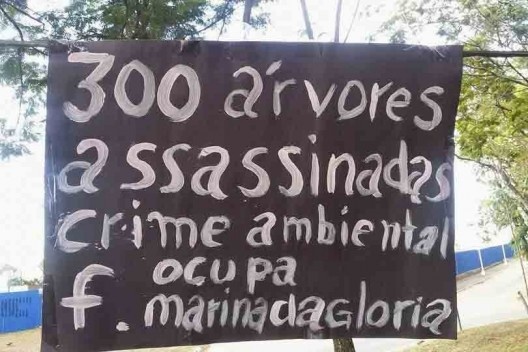 300 árvores
assassinadas
crime ambiental
f. ocupa
marinadagloria